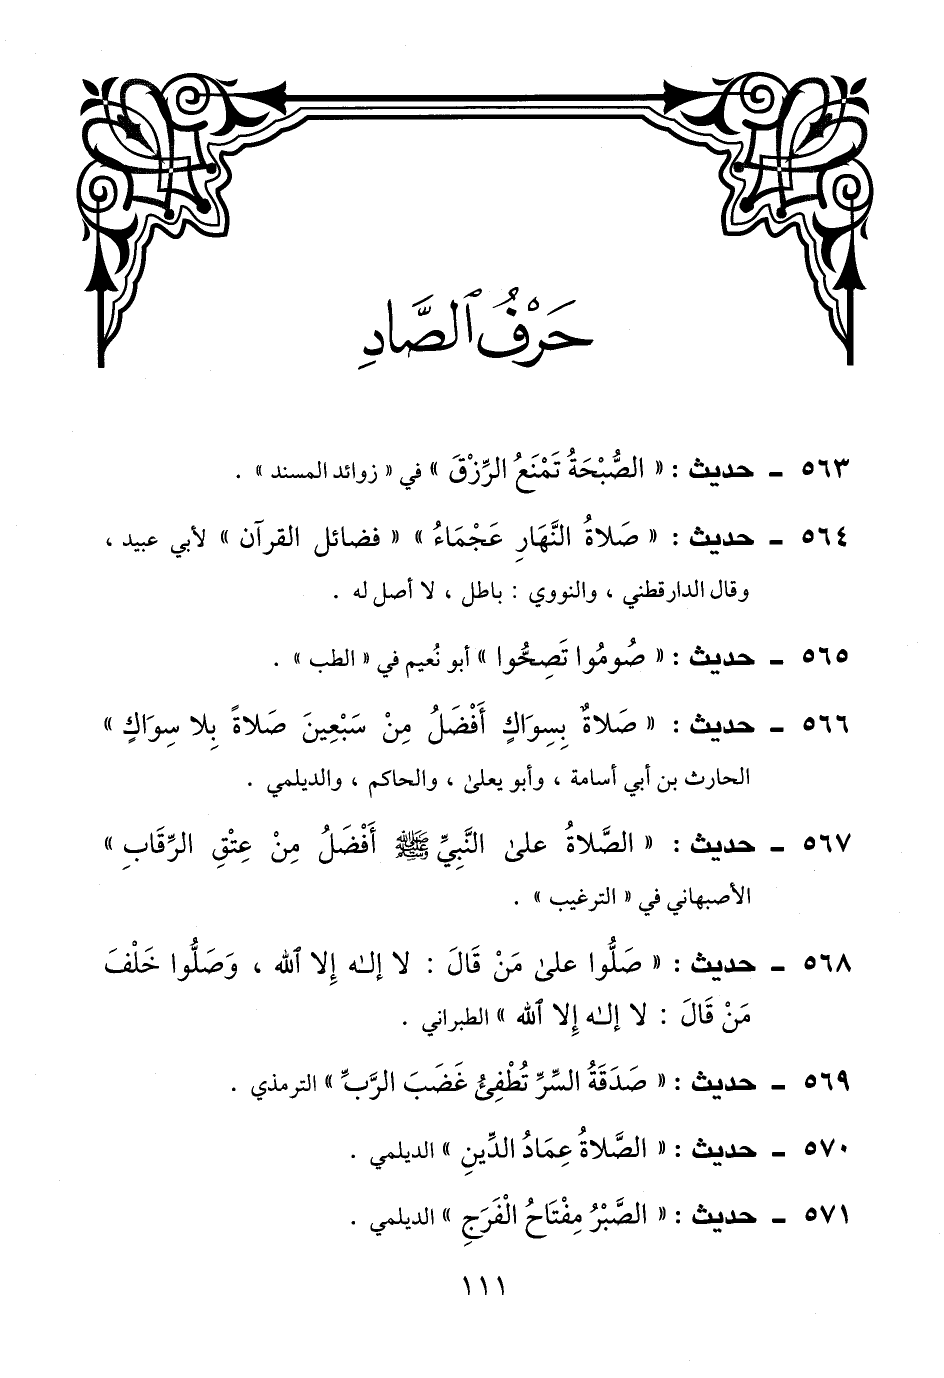 حَرْفُ ٱلصَّادِ
٥٦٣ ـ حديث : « الصُّبْحَةُ تَمْنَعُ الرِّزْقَ » في « زوائد المسند » .
٥٦٤ ـ حديث : « صَلاةُ النَّهَارِ عَجْمَاءُ » « فضائل القرآن » لأبي عبيد ،
وقال الدارقطني ، والنووي : باطل ، لا أصل له .
٥٦٥ ـ حديث : « صُومُوا تَصِحُّوا » أبو نُعيم في « الطب » .
٥٦٦ ـ حديث : « صَلاةٌ بِسِوَاكٍ أَفْضَلُ مِنْ سَبْعِينَ صَلاةً بِلا سِوَاكٍ »
الحارث بن أبي أسامة ، وأبو يعلىٰ ، والحاكم ، والديلمي .
٥٦٧ ـ حديث : « الصَّلاةُ علىٰ النَّبِيِّ ﷺ أَفْضَلُ مِنْ عِتْقِ الرِّقَابِ »
الأصبهاني في « الترغيب » .
٥٦٨ ـ حديث : « صَلُّوا علىٰ مَنْ قَالَ : لا إلـٰه إِلا ٱلله ، وَصَلُّوا خَلْفَ
مَنْ قَالَ : لا إلـٰه إِلا ٱلله » الطبراني .
٥٦٩ ـ حديث : « صَدَقَةُ السِّرِّ تُطْفِئُ غَضَبَ الرَّبِّ » الترمذي .
٥٧٠ ـ حديث : « الصَّلاةُ عِمَادُ الدِّينِ » الديلمي .
٥٧١ ـ حديث : « الصَّبْرُ مِفْتَاحُ الْفَرَجِ » الديلمي .
١١١